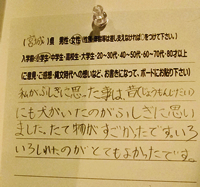 (宮城)県 男性・女性(性別・学年等は差し支えなければ○をつけて下さい。)
入学前・小学生・中学生・高校生・大学生・20~30代・40~50代・60~70代・80才以上
(ご意見・ご感想・縄文時代への想いなど、お書きになって、ボードにお貼り下さい)
私がふしぎに思った事は、昔(じょうもんじだい)
にも犬がいたのがふしぎに思い
ました。たて物がすごかたです。いろ
いろしれたのがとてもよかたです。